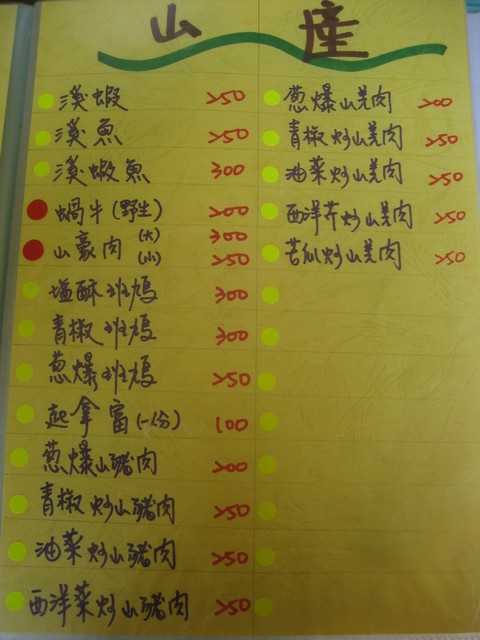 山產
溪蝦 250
溪魚 250
溪蝦魚 300
蝸牛(野生) 200
山豪肉 (大) 300
(小) 250
塩酥班鳩 300
青椒班鳩 300
蔥爆班鳩 250
起拿富(一份) 100
蔥爆山豬肉 200
青椒炒山豬肉 250
油菜炒山豬肉 250
西洋菜炒山豬肉 250
蔥爆山羌肉 200
青椒炒山羌肉 250
油菜炒山羌肉 250
西洋芹炒山羌肉 250
苦瓜炒山羌肉 250